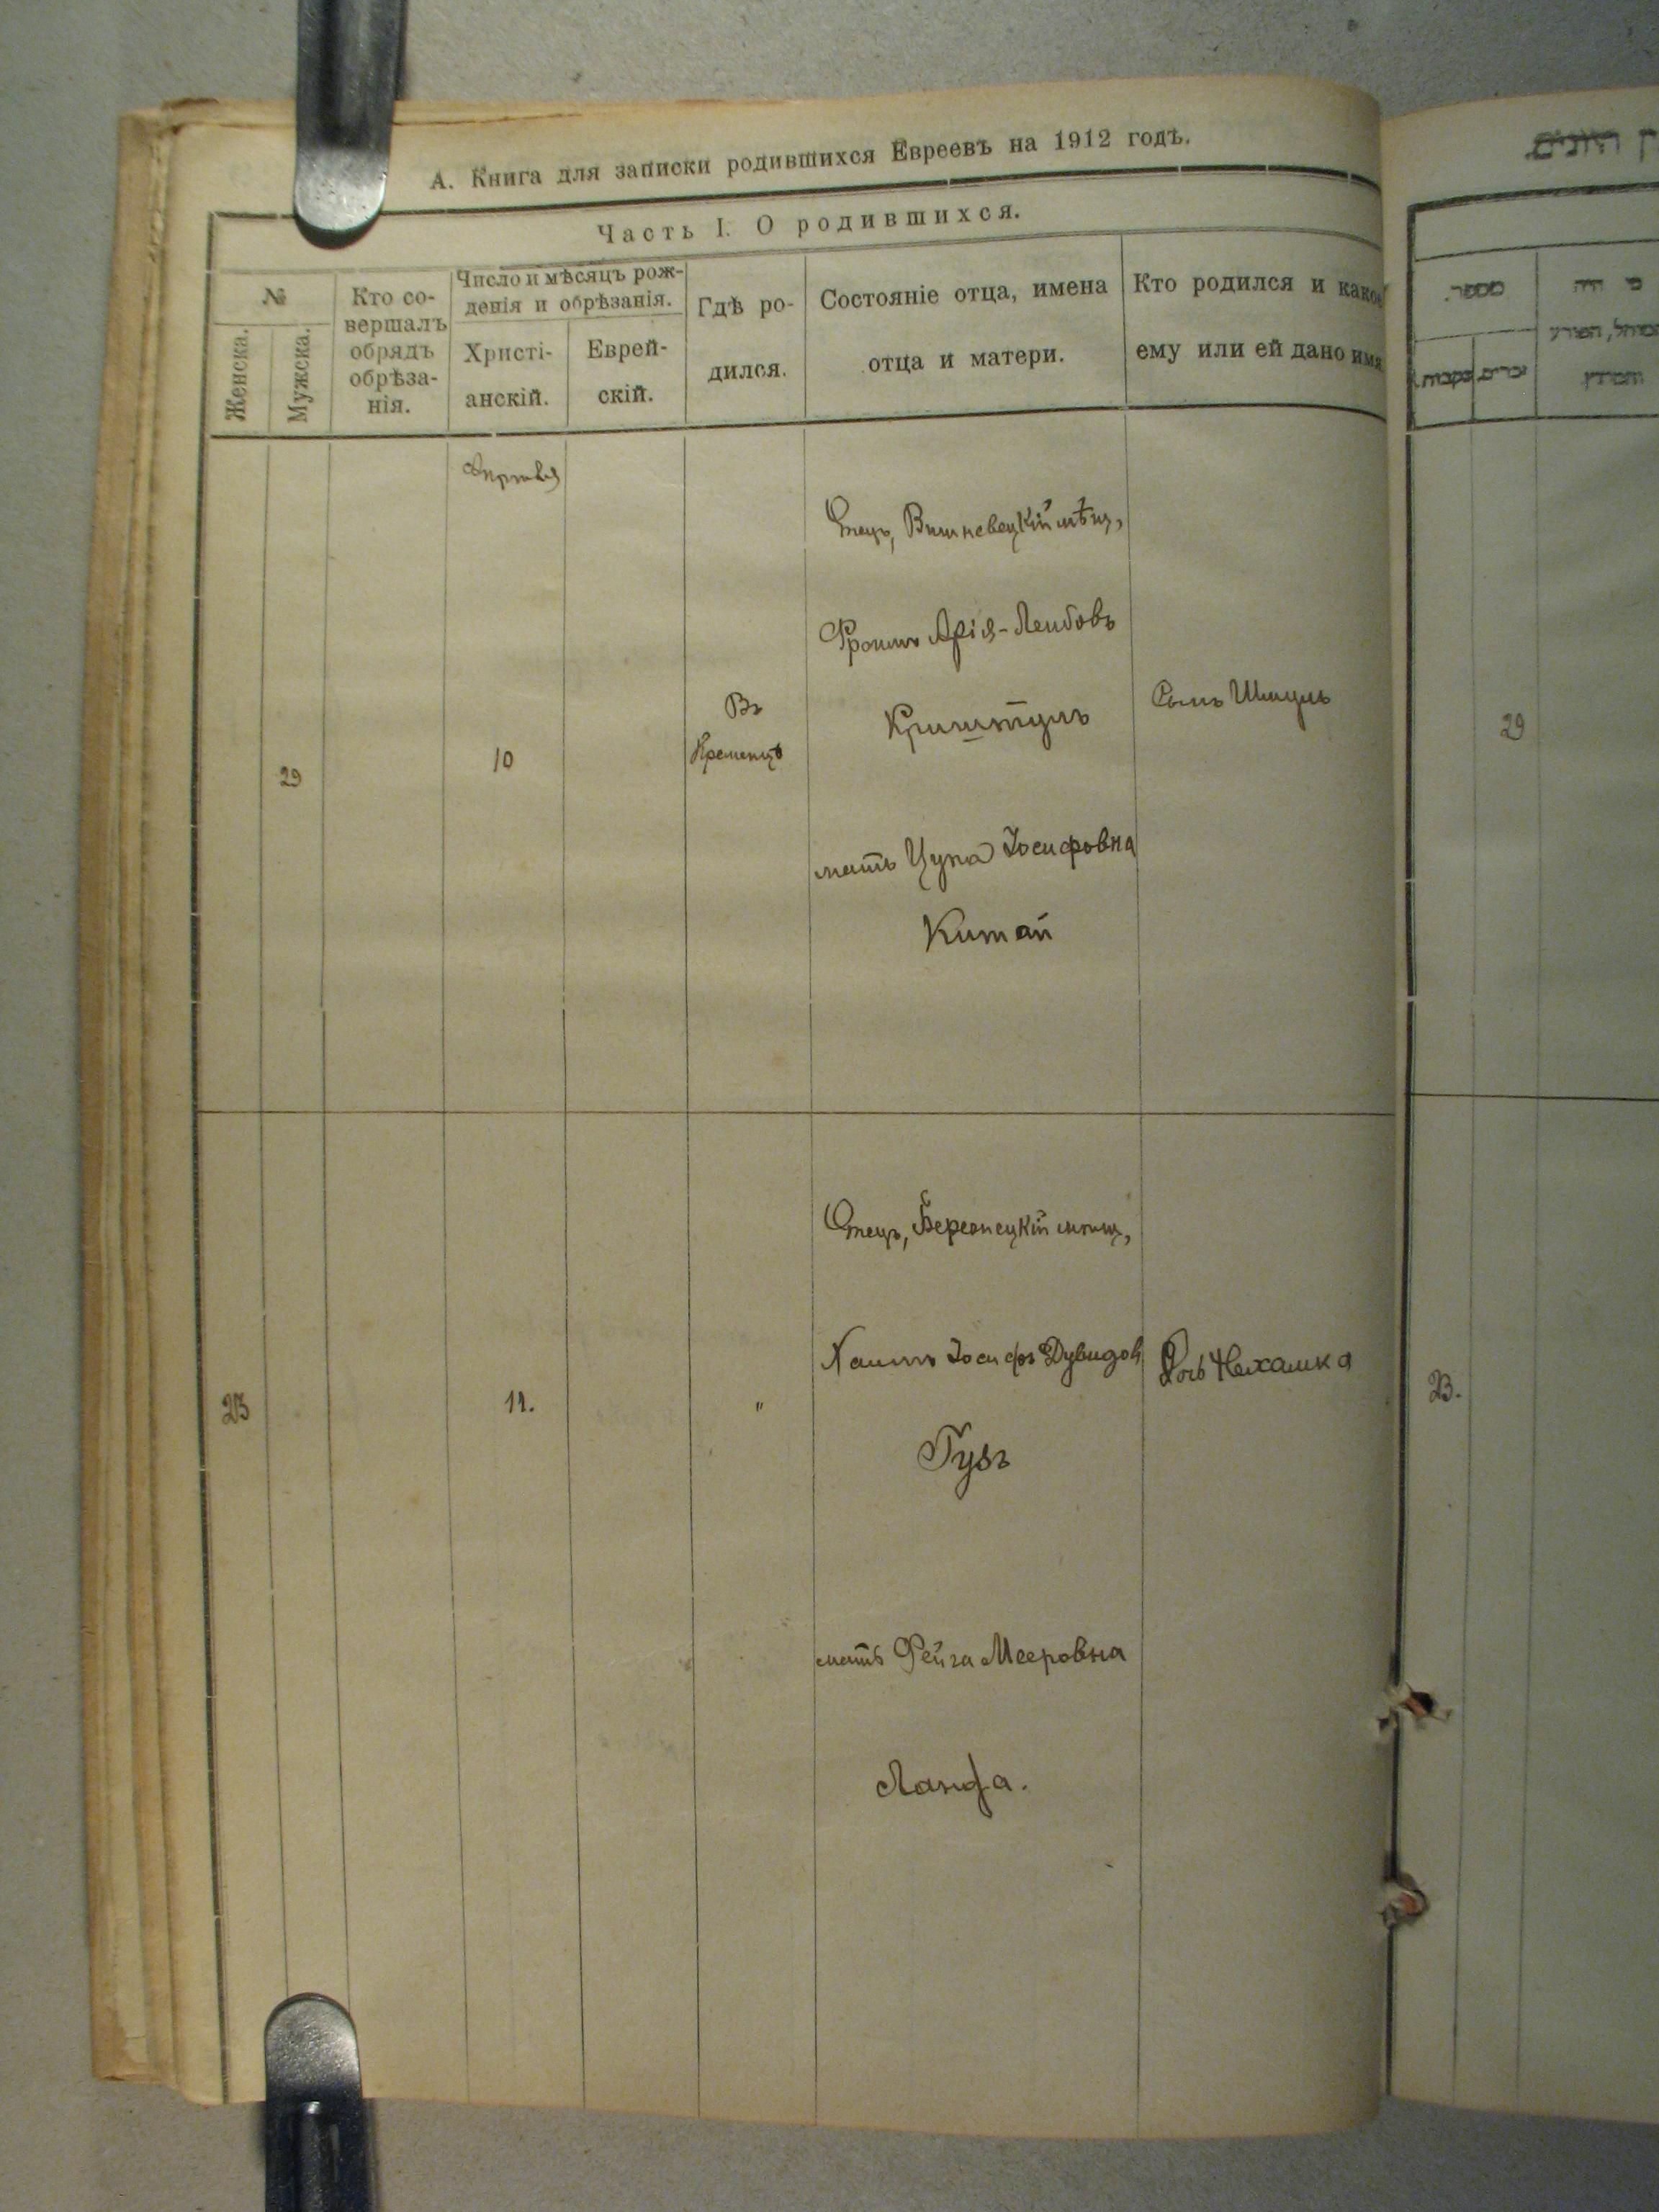 А. Книга для записки родившихся Евреевъ на 1912 годъ.
Часть I. О родившихся.
№
Женска.
Мужска.
Кто со-
вершалъ
обрядъ
обрѣза-
нія.
Число и мѣсяцъ рож-
денія и обрѣзанія.
Христі-
анскій.
Еврей-
скій.
Гдѣ ро-
дился.
Состояніе отца, имена
отца и матери.
Кто родился и какое
ему или ей дано имя
Апрѣля
29
10
Въ
Кременцѣ
Отецъ, Вишневецкій мѣщ,
Фроимъ Арія-Лейбовъ
Криштулъ
мать Цупа Іосифовна
Китай
Сынъ Шмуль
23
11.
"
Отецъ, Бережецкій мѣщ,
Хаимъ Іосифъ Дувидов
Гузъ
мать Фейга Мееровна
Ланда.
Дочь Нехамка
מספר.
זכרים.
נקבות.
29
23.